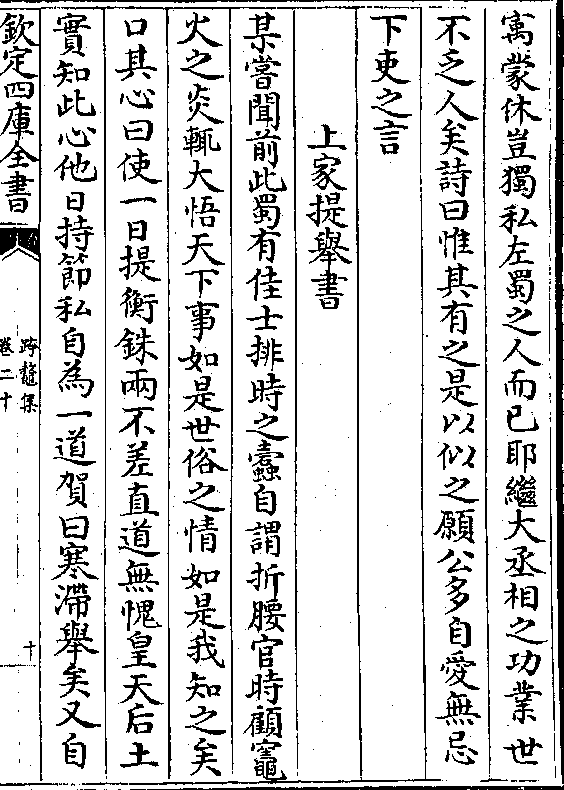 寓蒙休豈獨私左蜀之人而已耶繼大丞相之功業世
不乏人矣詩曰惟其有之是以似之願公多自愛無忌
下吏之言
上家提舉書
某嘗聞前此蜀有佳士排時之蠹自謂折腰官時顧竈
火之炎輒大悟天下事如是世俗之情如是我知之矣
口其心曰使一日提衡銖兩不差直道無愧皇天后土
實知此心他日持節私自為一道賀曰寒滯舉矣又自
欽定四庫全書
跨鼇集
卷二十
十